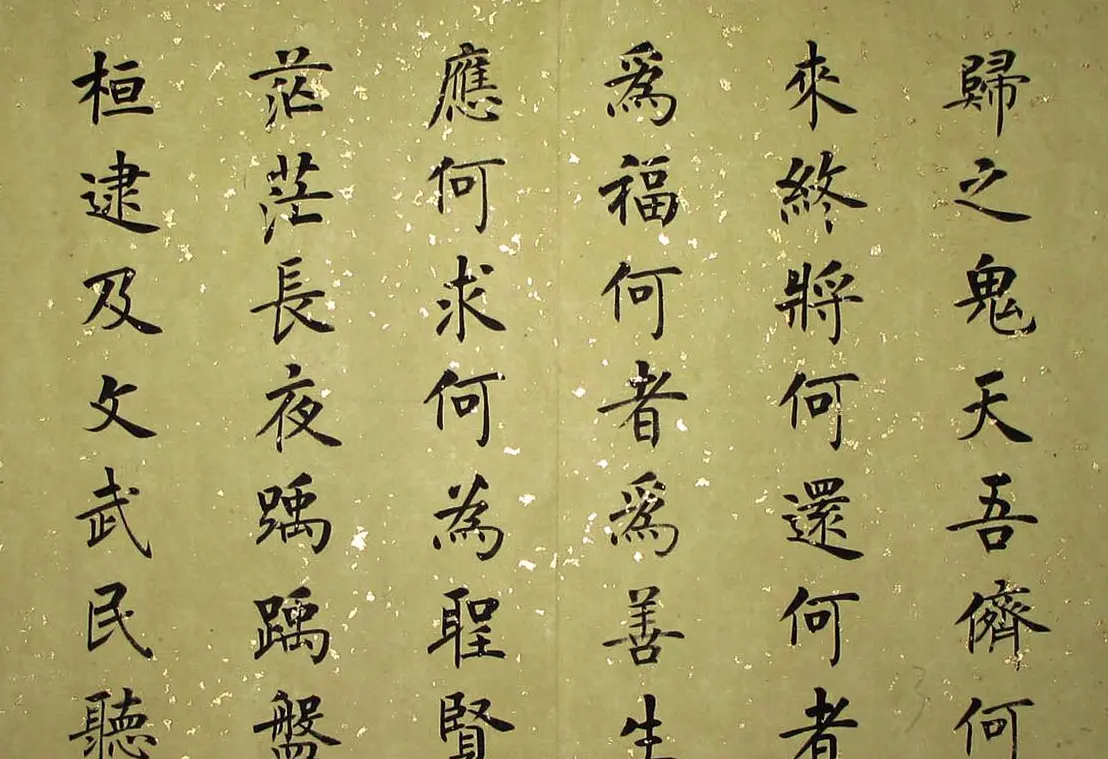 歸之鬼天吾儕何
來終將何還何者
爲福何者爲善生
應何求何為聖賢
茫茫長夜踽踽盤
桓逮及文武民聽